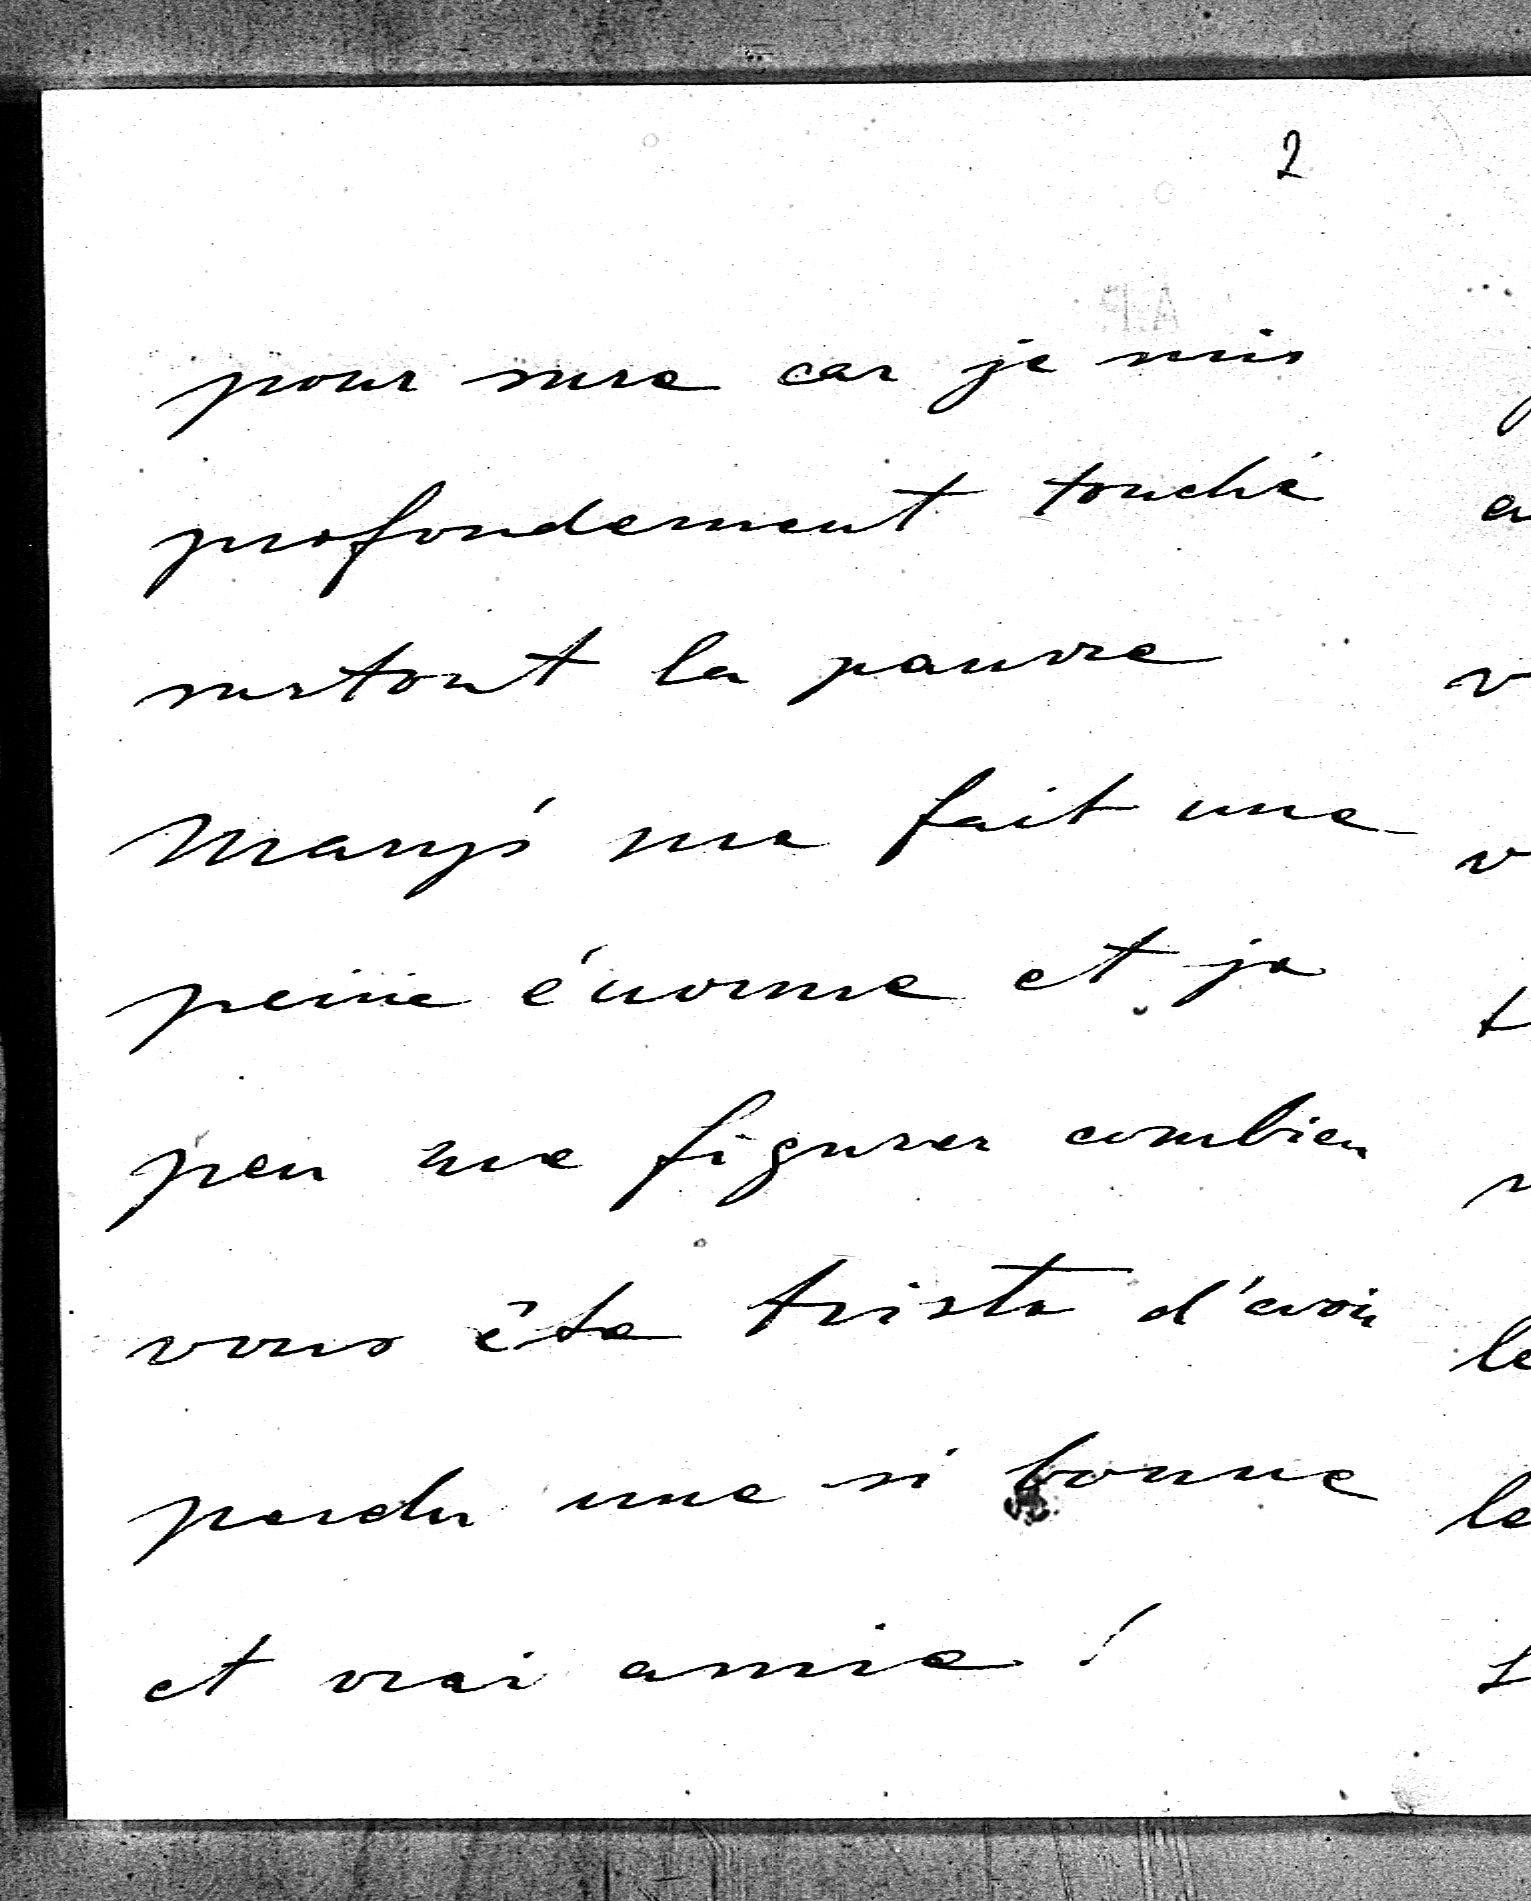 2
pour sure car je suis
profondement touché
surtout la pauvre
Mary's me fait une
peine énorme et je
peu me figurer combien
vous ête triste d'avoir
perdu une si bonne
et vrai amie !